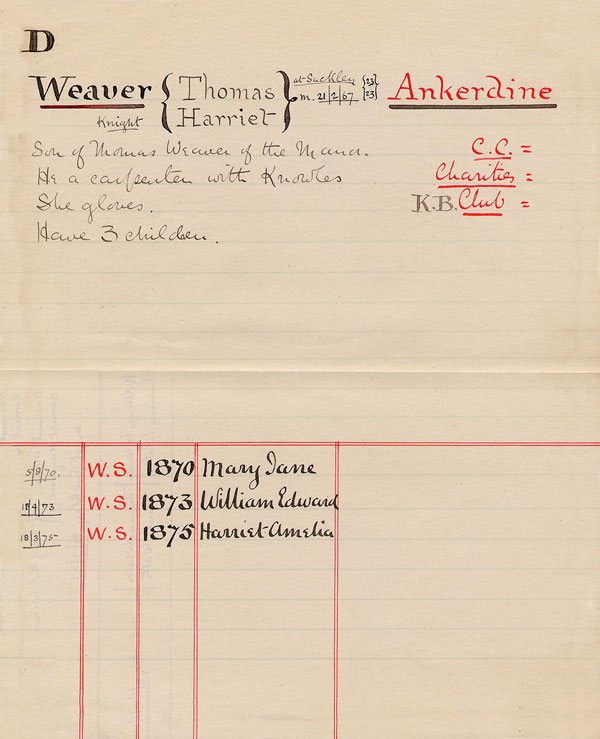 D
Weaver { Thomas } at Suckley {23} Ankerdine
Knight { Harriet } m. 21|2|67 {23}
Son of Thomas Weaver of the Manor. C.C. =
He a carpenter with Knowles Charities =
She gloves. K.B. Club =
Have 3 children.
5|8|70. W.S. 1870 Mary Jane
|4|73 W.S. 1873 William Edward
18|3|75 W.S. 1875 Harriet Amelia